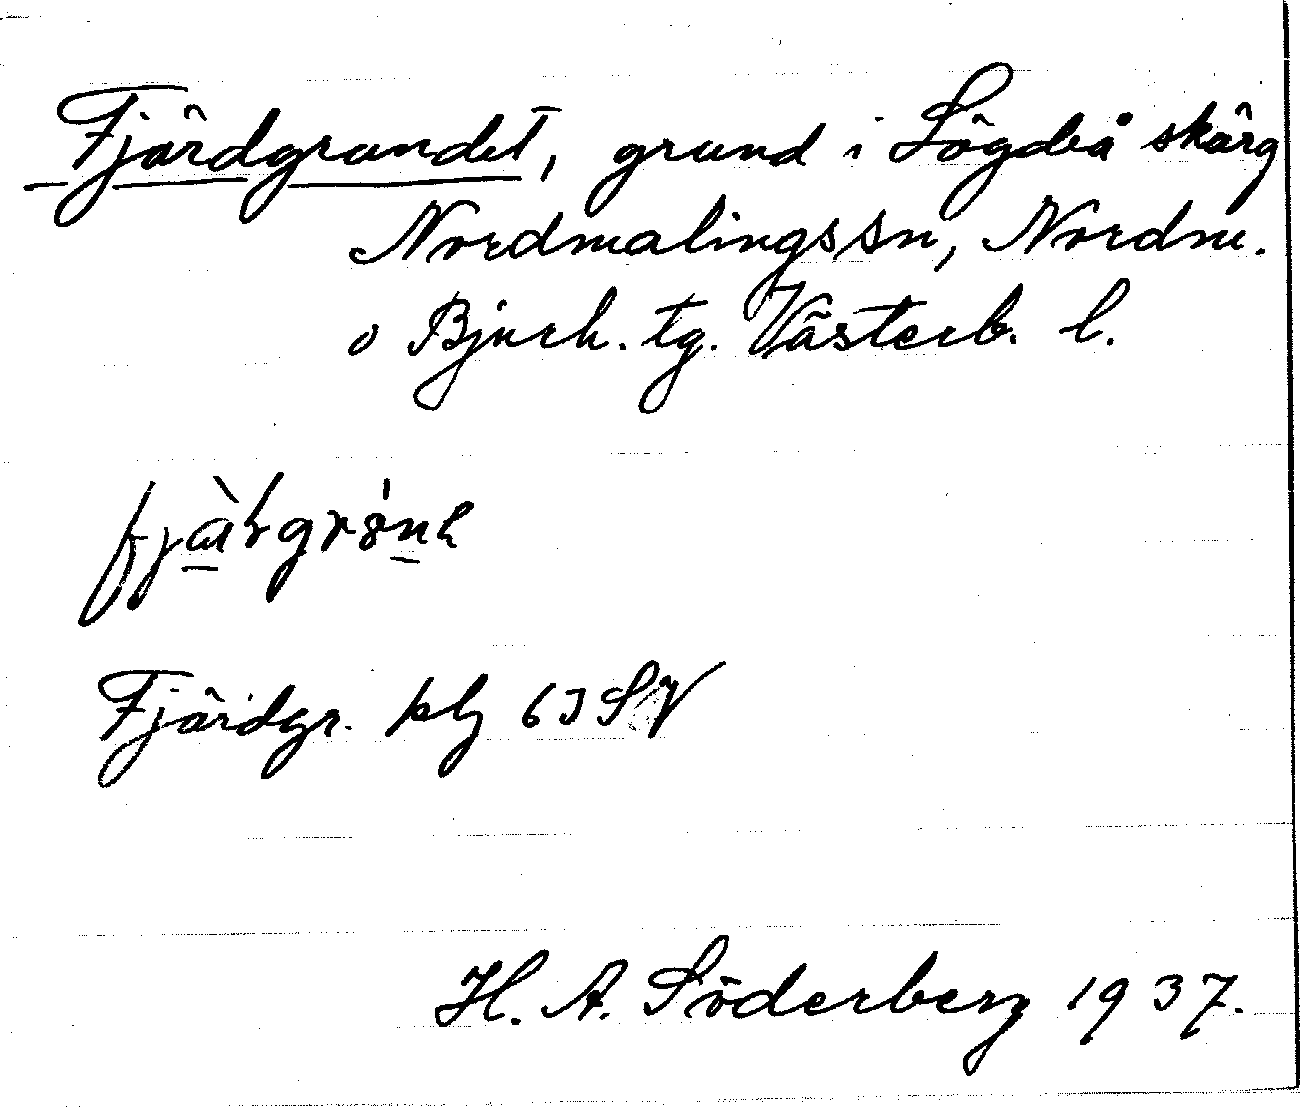 Fjärdgrundet, grund i Lögdeå skärg
Nordmalingssn, Nordm.
o Bjurh. tg. Västerb. l.
Fjärdgr. kbl 63 SV
H. A. Söderberg 1937.